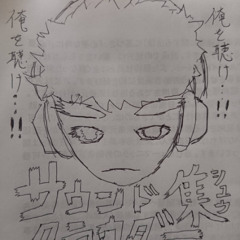 俺を聴け…!!
俺を聴け…!!
サウンド
クラウダー
集
シュウ